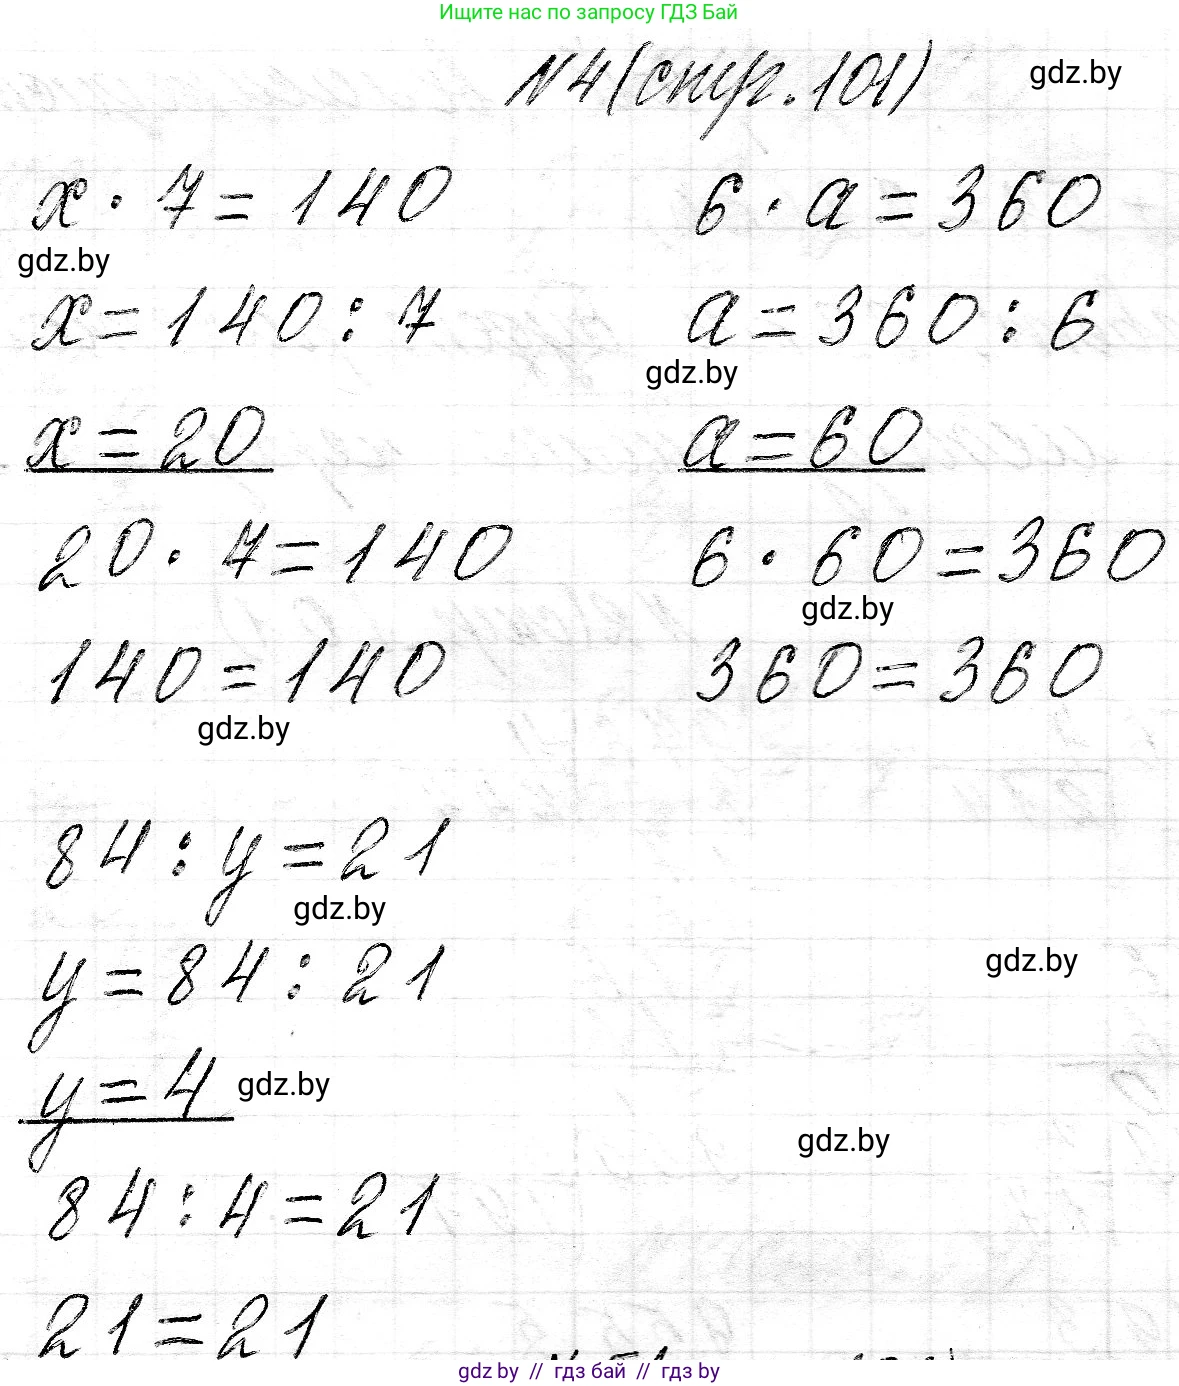 Ищите нас по запросу ГДЗ Бай
№4 (стр. 101)
gdz.by
x · 7 = 140
6 · a = 360
gdz.by
x = 140 : 7
a = 360 : 6
gdz.by
x = 20
a = 60
20 · 7 = 140
6 · 60 = 360
gdz.by
140 = 140
360 = 360
gdz.by
84 : y = 21
gdz.by
y = 84 : 21
gdz.by
y = 4
gdz.by
gdz.by
84 : 4 = 21
21 = 21
gdz.by // гдз бай // гдз by